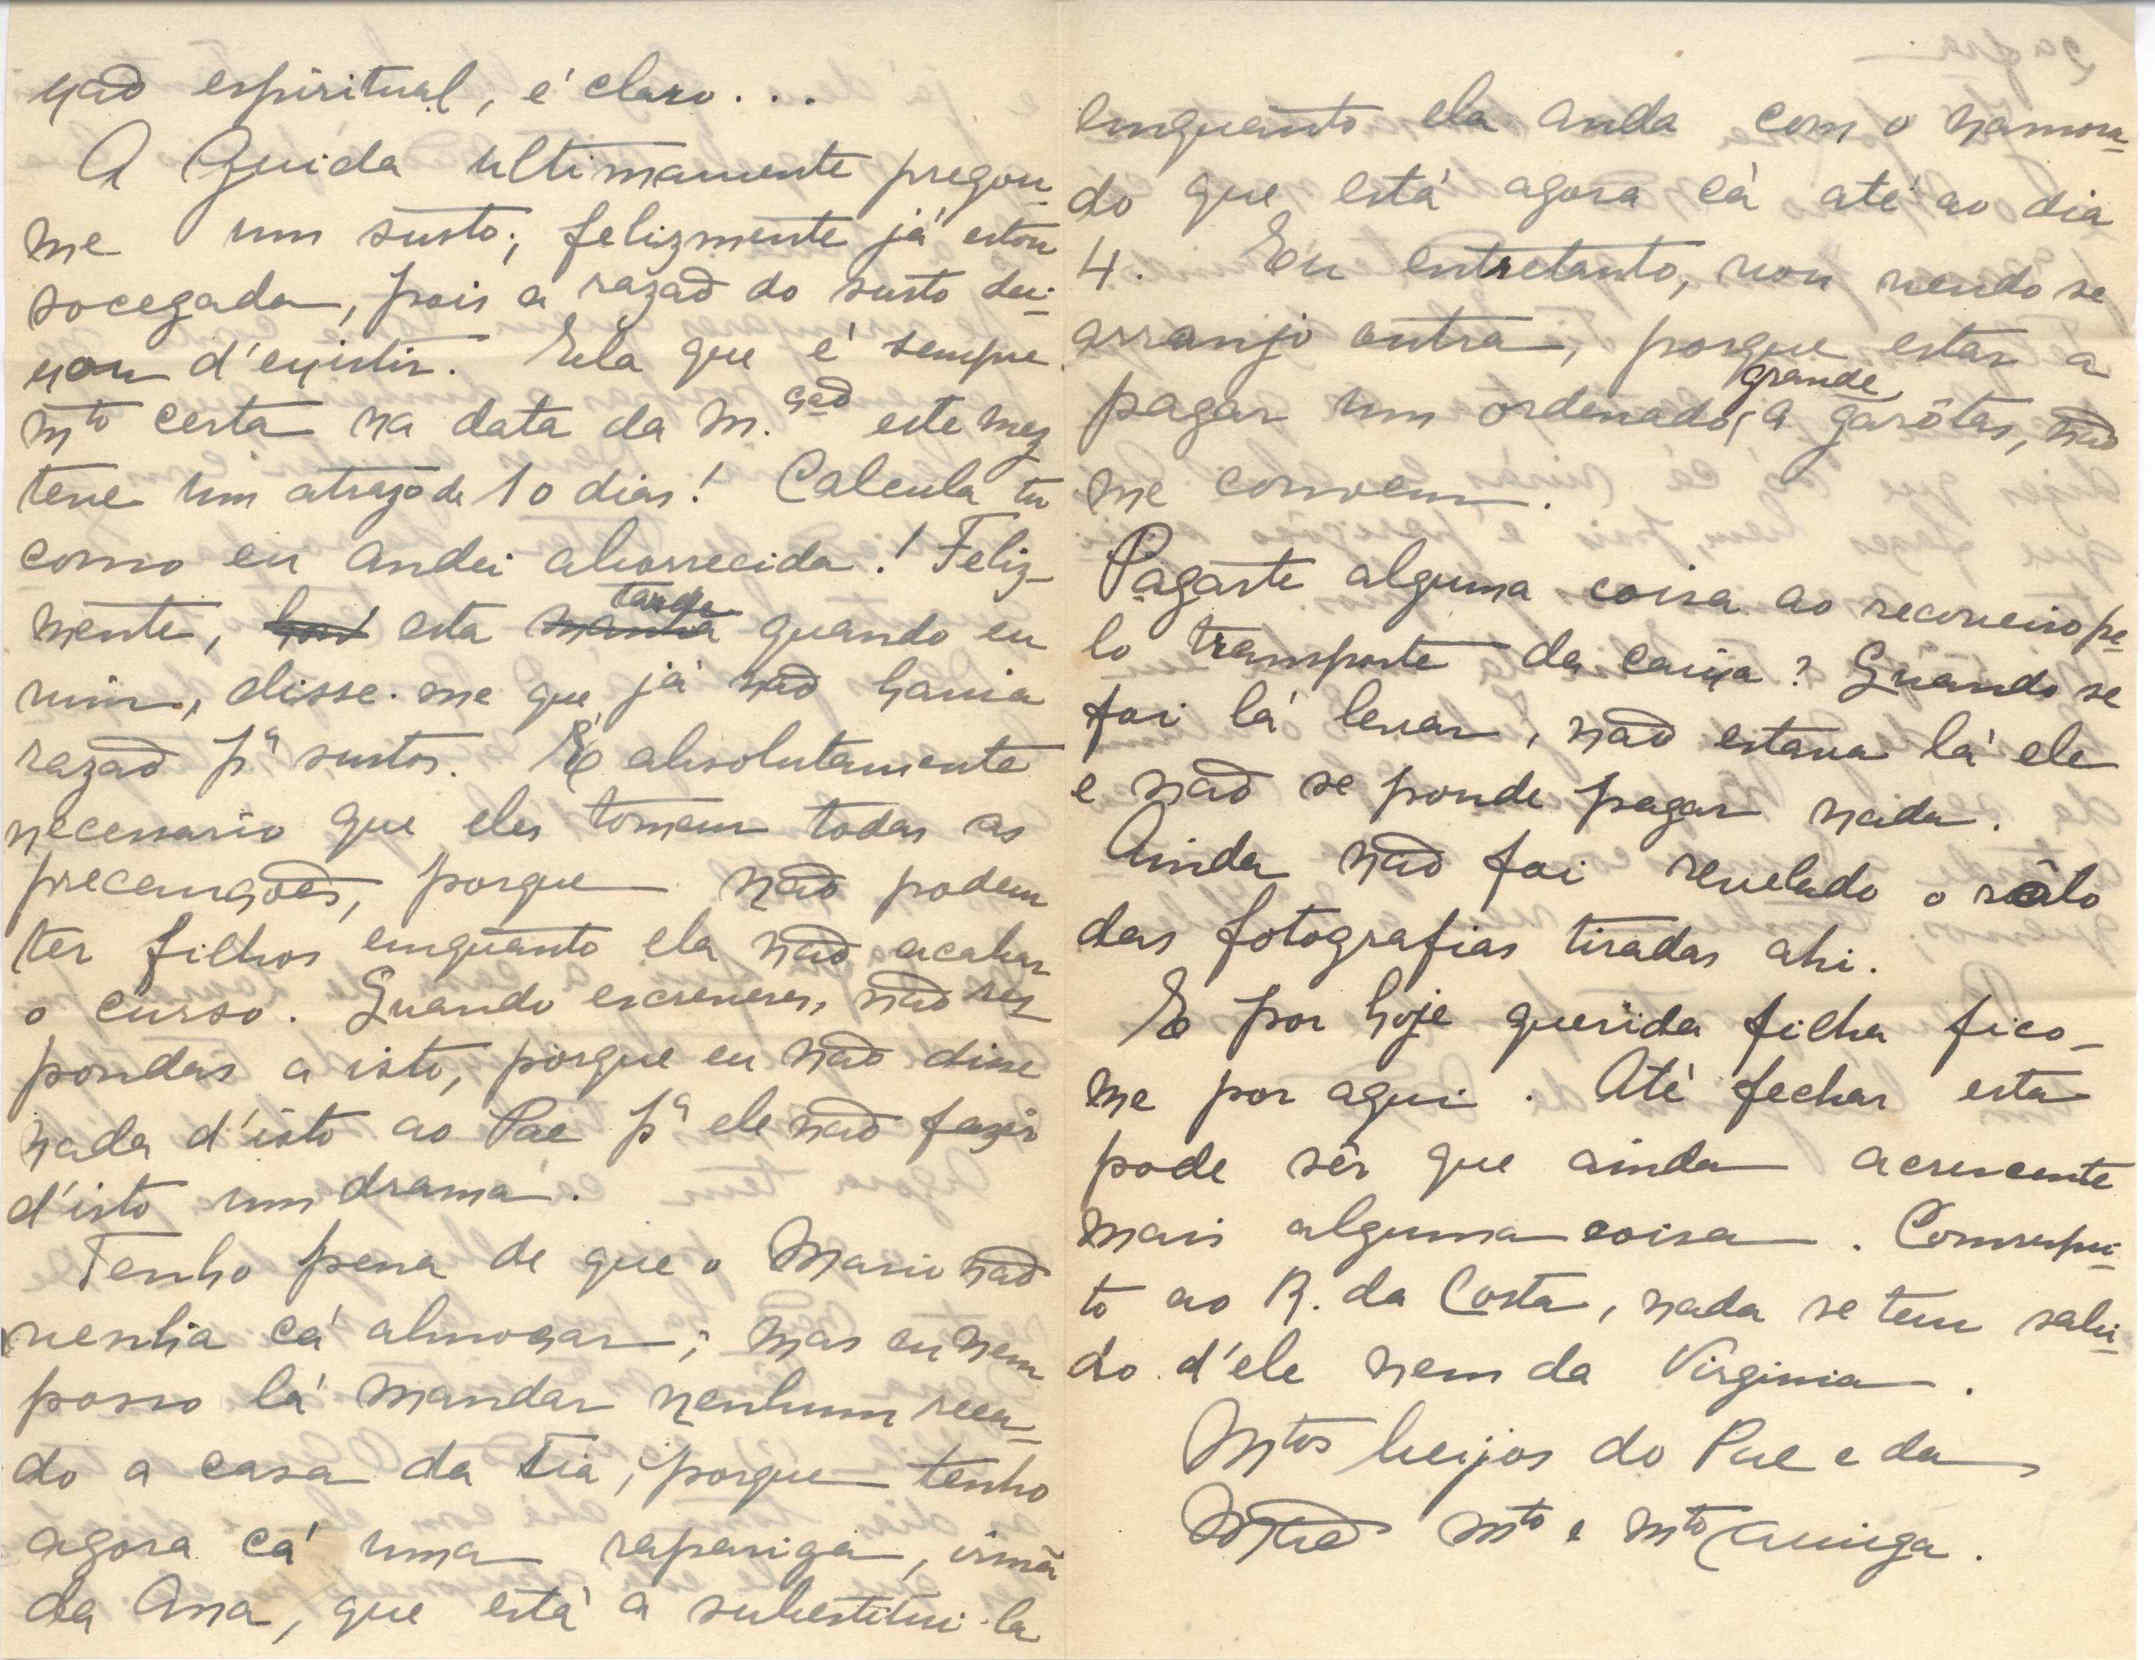 ção espiritual, é claro...
A Guida ultimamente pregou-
me um susto; felizmente já estou
socegada, pois a razão do susto dei-
xou d'existir. Ela que é sempre
mto certa na data da m.ção este mez
teve um atrazo de 10 dias! Calcula tu
como eu andei aborrecida! Feliz-
mente, esta manhã tarde quando eu
vim, disse-me que já não havia
razão pª sustos. E absolutamente
necessario que eles tomem todas as
precauções, porque não podem
ter filhos emquanto ela não acabar
o curso. Quando escreveres, não res-
pondas a isto, porque eu não disse
nada d'isto ao Pae pª ele não fazer
d'isto um drama.
Tenho pena de que o Mario não
venha cá almoçar; mas eu nem
posso lá mandar nenhum reca-
do a casa da tia, porque tenho
agora cá uma rapariga, irmã
da Ana, que está a substitui-la
emquanto ela anda com o namora-
do que está agora cá até ao dia
4. Eu entretanto, vou vendo se
arranjo outra, porque estar a
pagar um ordenado grande a garôtas, não
me convem.
Pagaste alguma coisa ao recoveiro pe-
lo transporte da caixa? Quando se
foi lá levar, não estava lá ele
e não se poude pagar nada.
Ainda não foi revelado o rôlo
das fotografias tiradas ahi.
E por hoje querida filha fico-
me por aqui. Até fechar esta
pode sêr que ainda acrescente
mais alguma coisa. Comrespei-
to ao R. da Costa, nada se tem sabi-
do d'ele nem da Virginia.
Mtos beijos do Pae e da
Mãe mto e mto amiga.